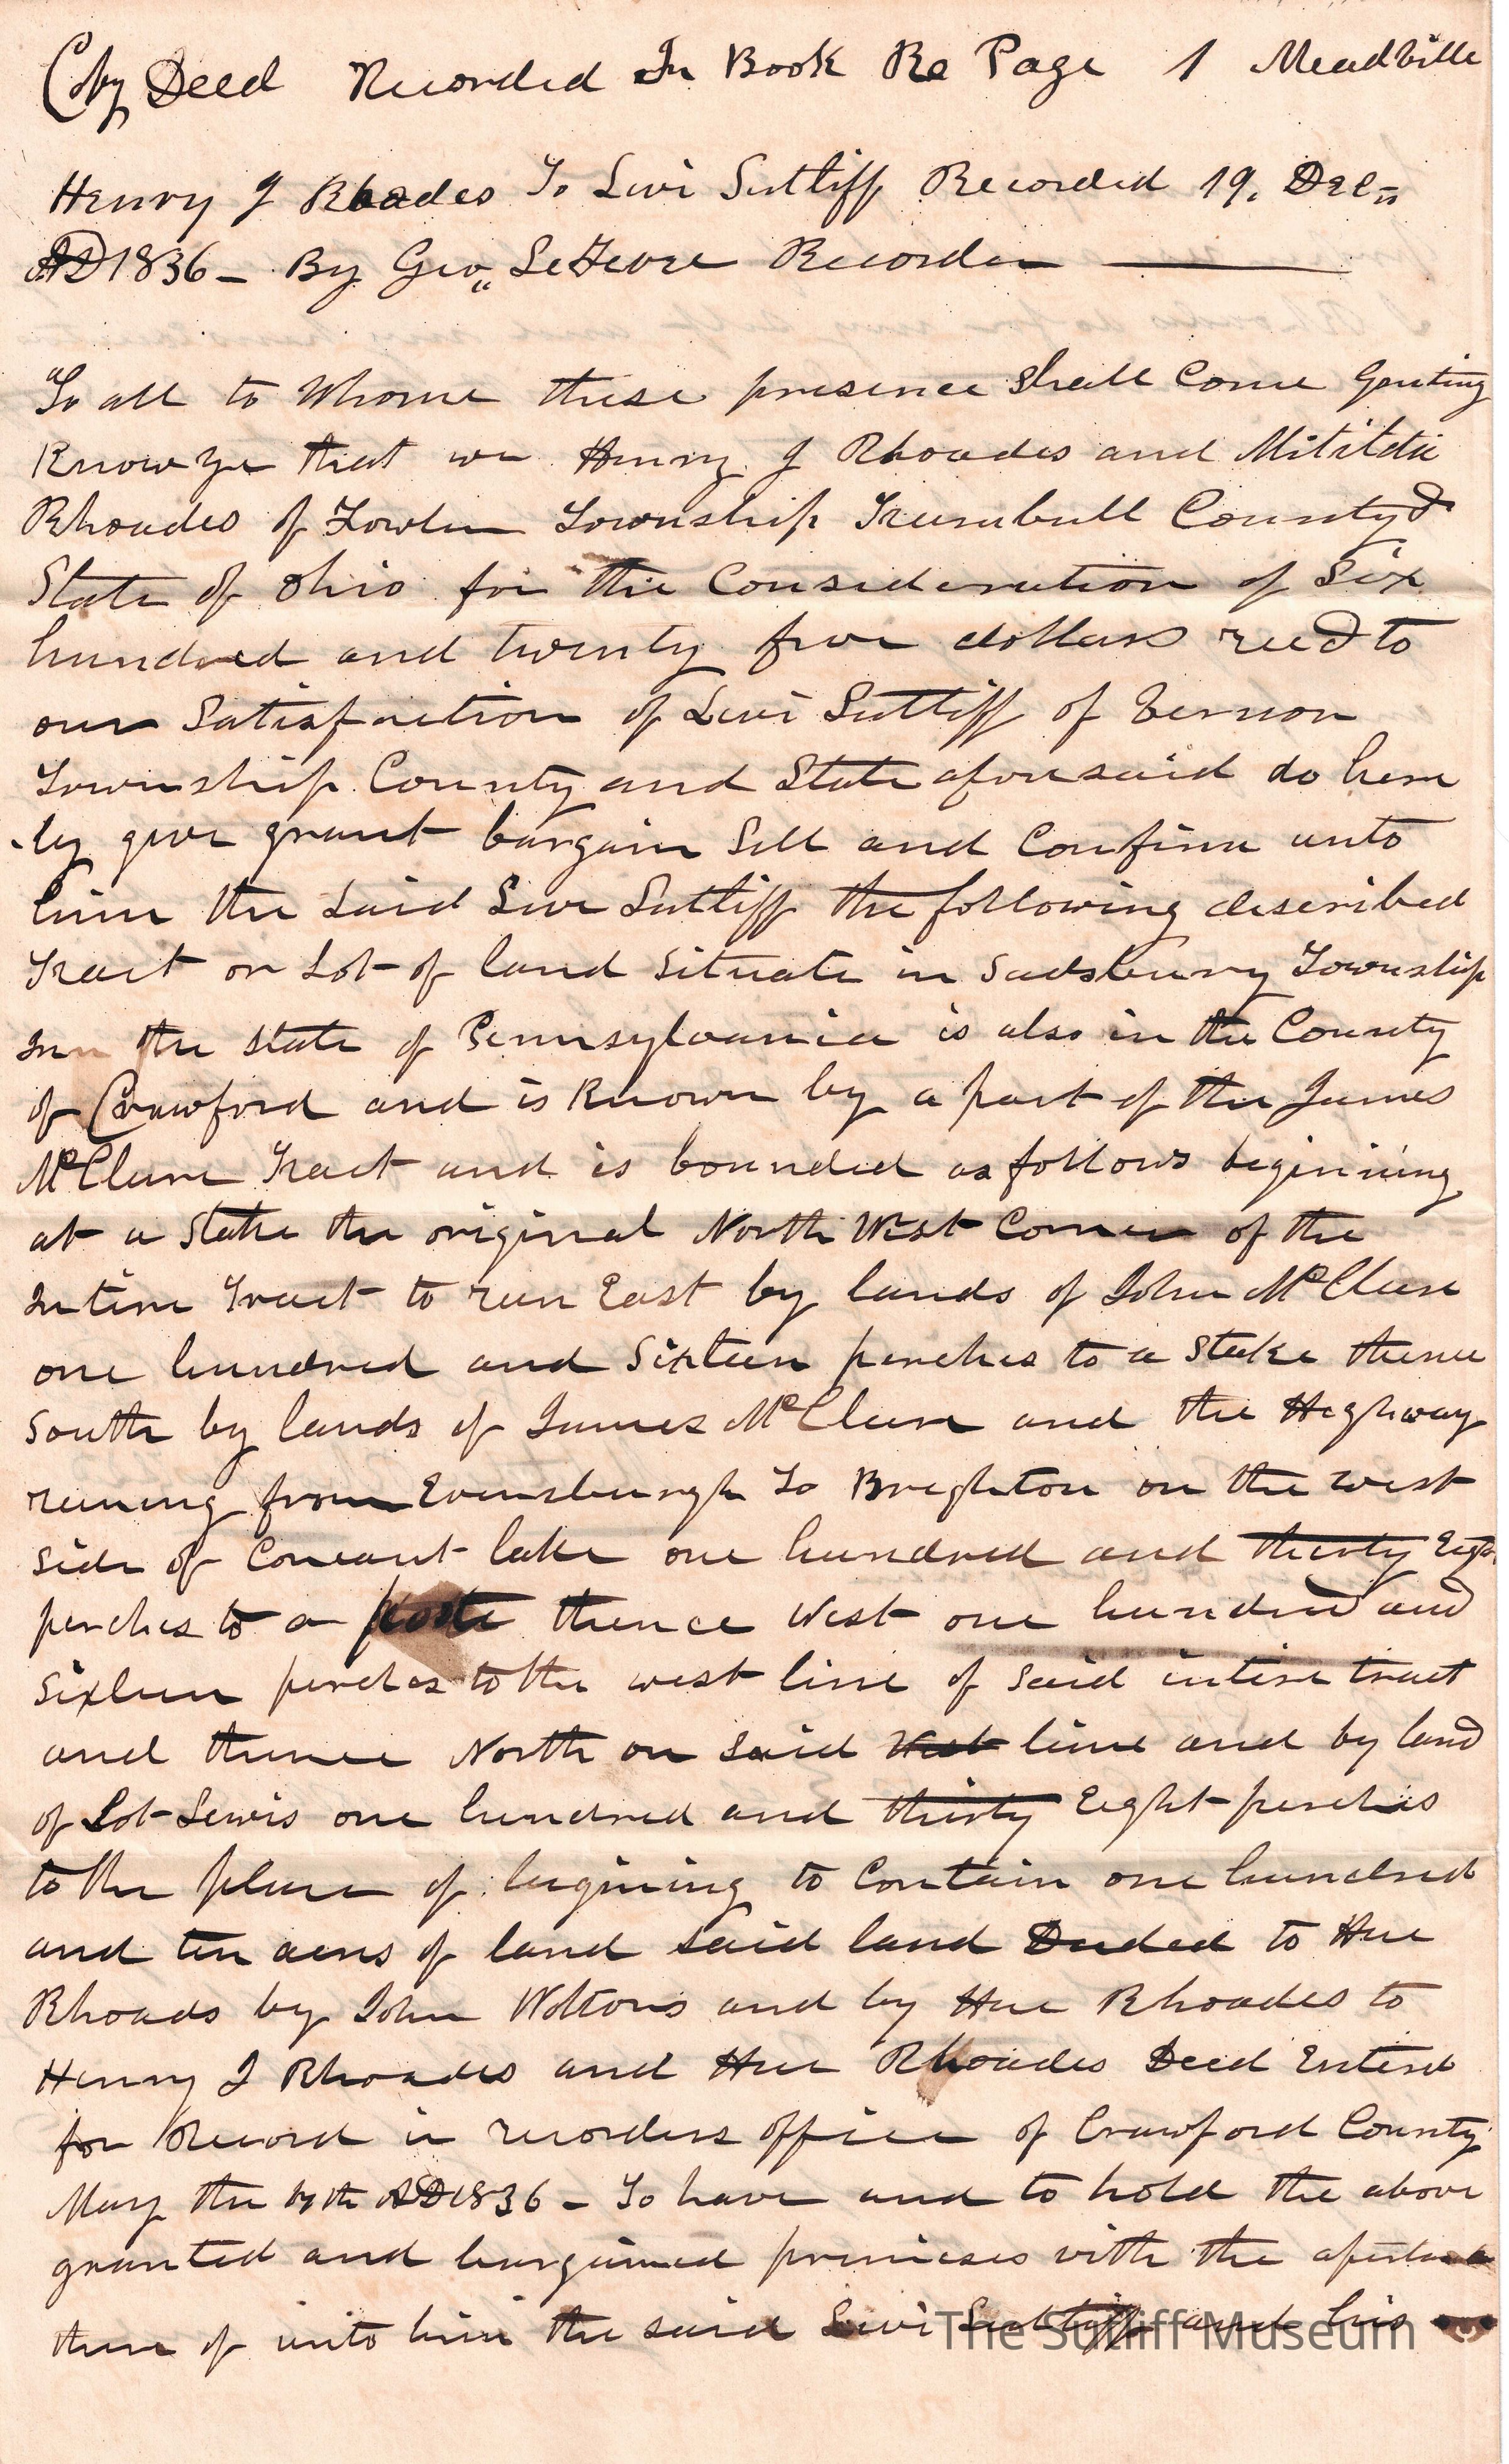 Coby Deed Recorded In Book Re Page 1 Meadville
Henry J Rhoades To Levi Sutliff Recorded 19. Dec=
AD 1836 - By Geo,, LeFevre Recorder
To all to Whome these presence Shall Come Greeting
Know ye that we Henry J Rhoades and Mitilda
Rhoades of Fowler Township Trumbull County &
State of Ohio for the Consideration of Six
hundred and twenty five dollars recd to
our Satisfaction of Levi Sutliff of Vernon
Township County and State aforesaid do here
-by give grant bargain Sell and Confirm unto
him the Said Levi Sutliff the following described
Tract or Lot of land Situate in Sadsbury Township
In the State of Pennsylvania is also in the County
of Crawford and is Known by a part of the James
McClure Tract and is bounded as follows begining
at a Stake the original North West Corner of the
Intire Tract to run East by lands of John McClure
one hundred and Sixteen perches to a Stake thence
South by lands of James McClure and the Highway
runing from Evensburgh To Brighton on the west
Side of Coneaut lake one hundred and thirty Eight
perches to a poste thence West one hundred and
Sixteen perches to the west line of Said intire tract
and thence North on Said West line and by land
of Lot Lewis one hundred and thirty Eight perches
to the place of begining to Contain one hundred
and ten acres of land Said land Deeded to Hue
Rhoads by John Wottons and by Hue Rhoades to
Henry J Rhoades and Hue Rhoades Deed Entired
for Record in recorders office of Crawford County
May the th AD 1836 - To have and to hold the above
granted and bargained premises with the
there of unto him the said Levi Sutliff and his
The Sutliff Museum